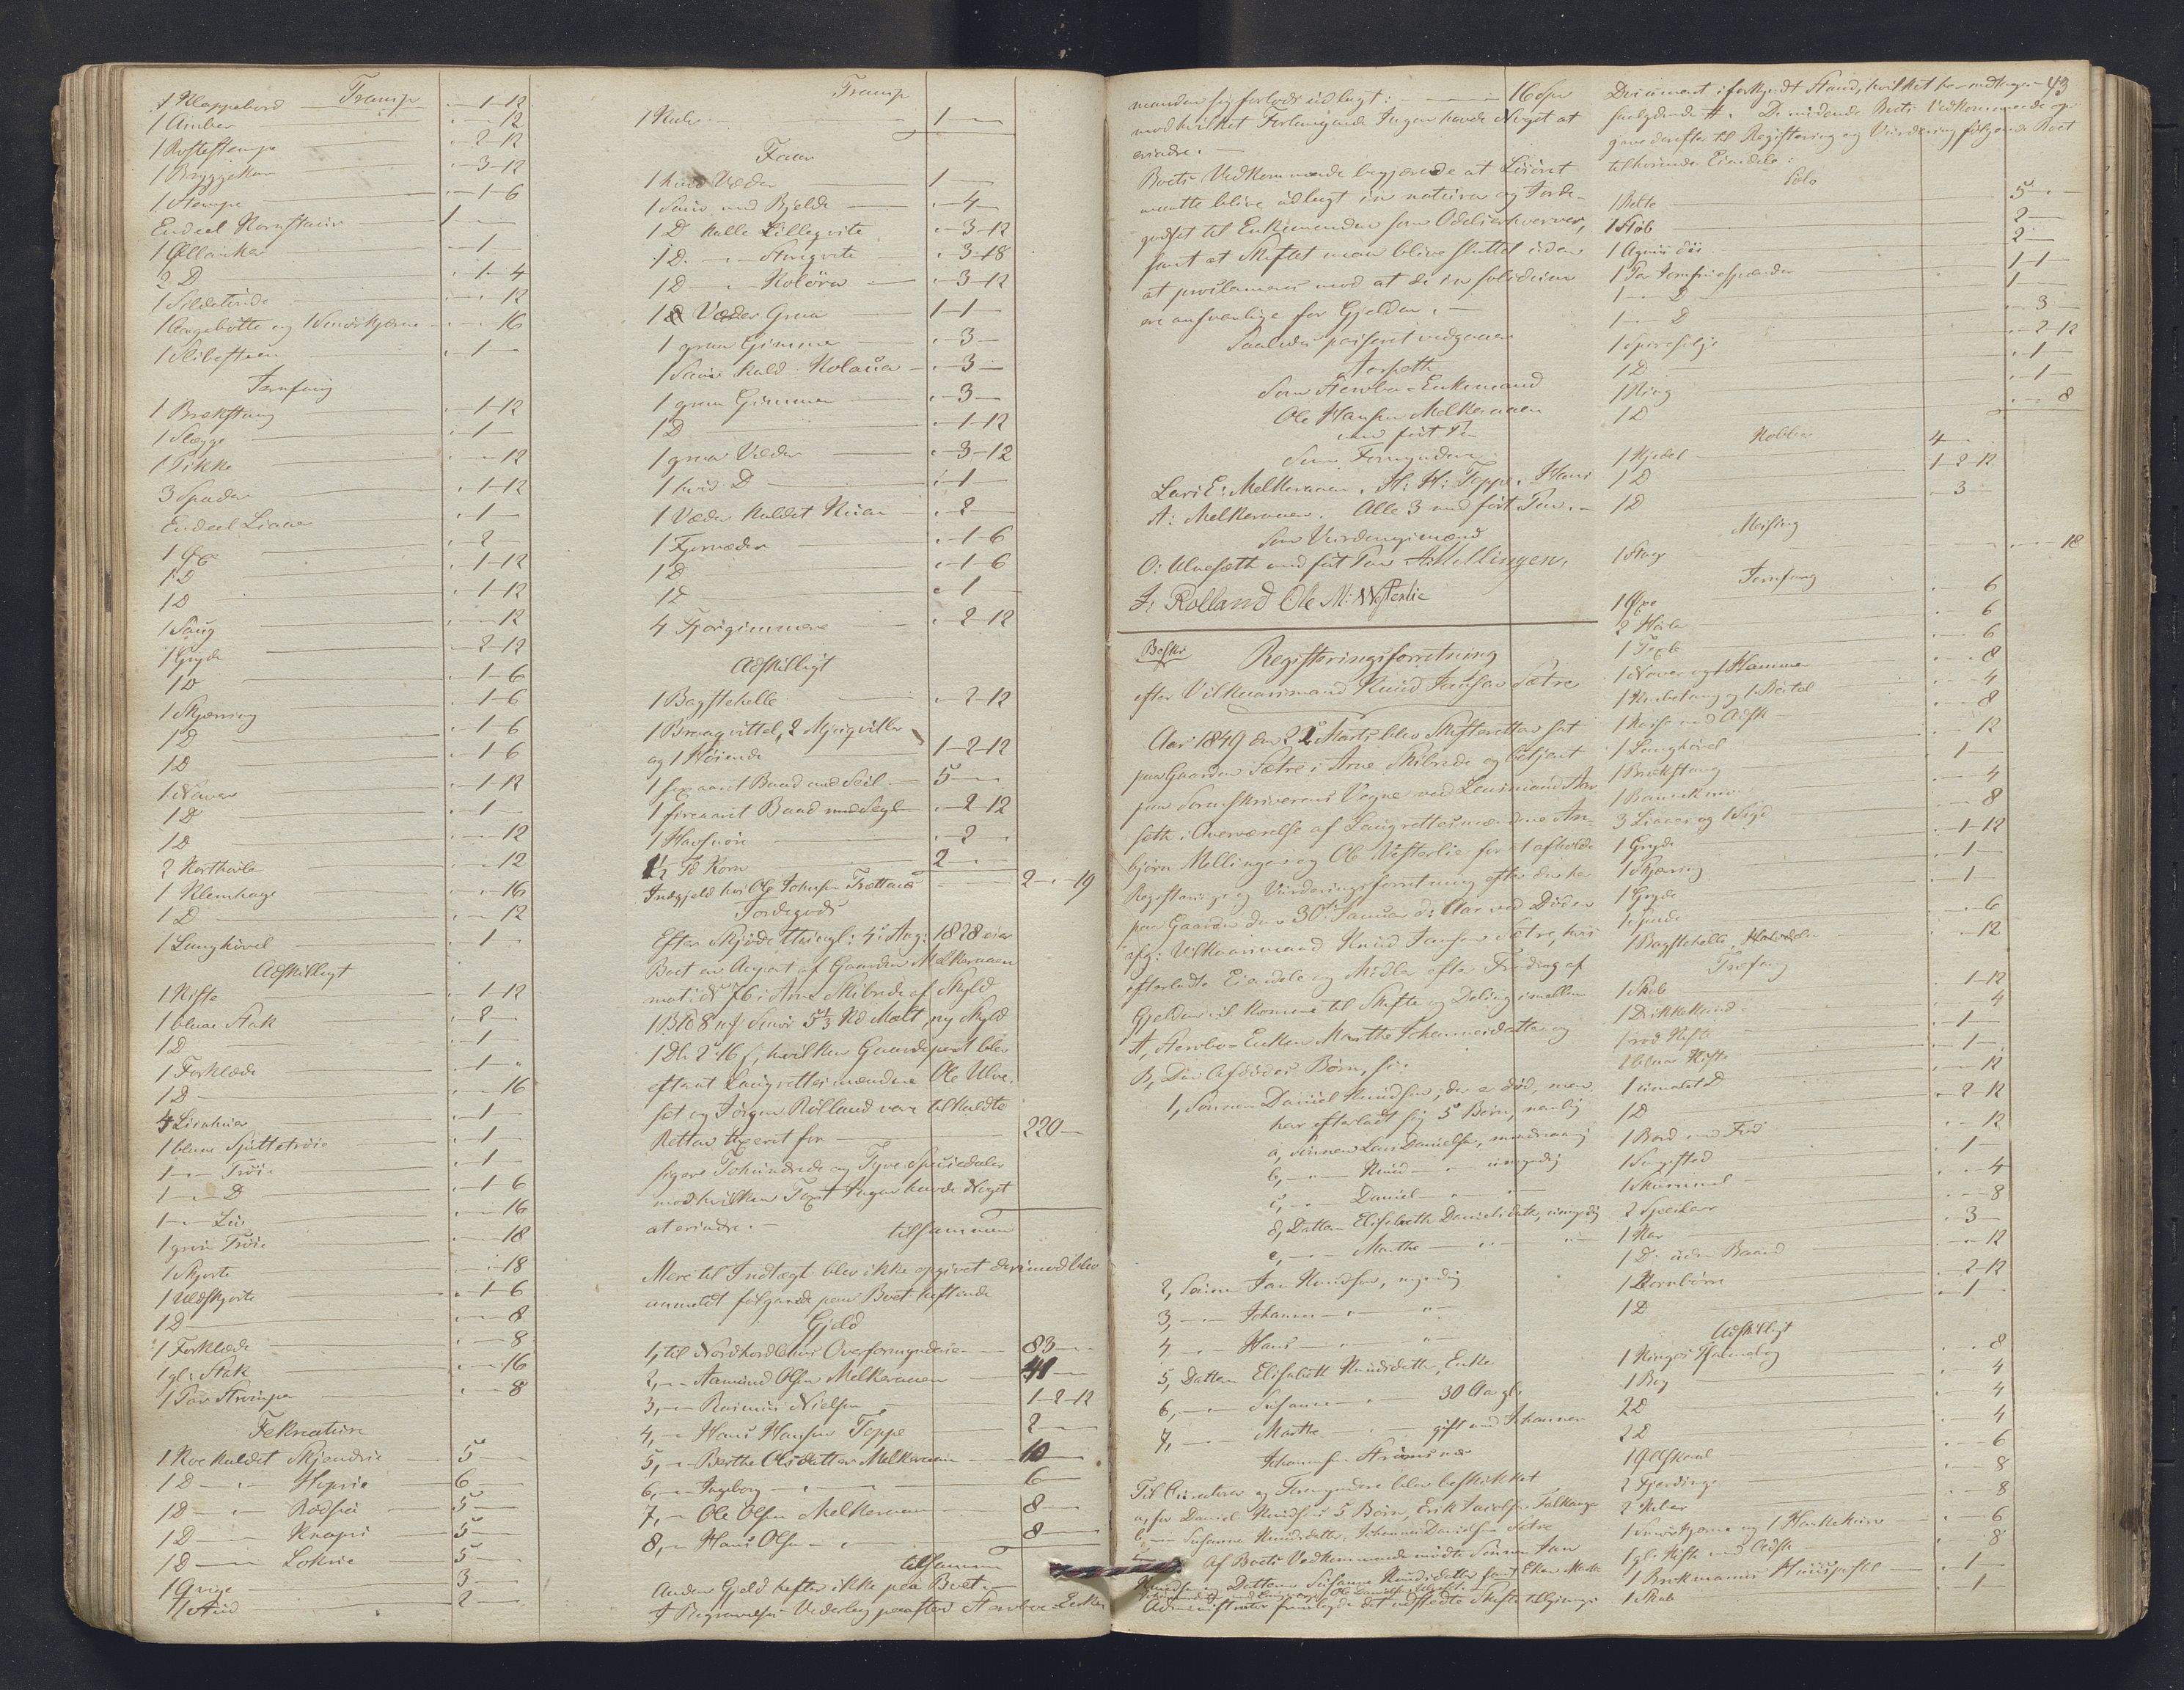 Transp
1 Klappebord .-1-12
1 Amber .-.-12
1 Rostestampe .-2-12
1 Bryggekar .-3-12
1 Stampe .-1-6
Endeel Kornstaur 1-.-
1 Ølanker .-1-
2 D .-1-4
1 Sildetinde .-.-12
1 og 1 Smørkjerne .-.-16
1 Slibesteen .-1-
Jernfang
1 Brækstang .-1-12
1 Slægge .-1-
1 Pikke .-.-12
3 Spader .-1-12
Endeel Liaaer .-1-
1 Øxe .-2-
1 D .-1-12
1 D .-1-12
1 Saug .-.-12
1 Gryde .-2-12
1 D .-1-6
1 Skjæring .-1-6
1 D .-1-6
1 D .-1-6
1 Naver .-1-12
1 D .-1-
1 D .-.-12
2 Korthøvle .-.-12
1 Klemhage .-.-16
1 D .-.-12
1 Langhøvel .-1-
Adskilligt
1 Kiste .-1-12
1 blaae Stak .-2-
1 D .-1-
1 Forklæde .-1-.
1 D .-.-16
4 Linhuer .-1-
1 blaae Spittetrøie .-1-
1 -.- Trøie .-1-
1 -.- D .-1-6
1 -.- Liv .-.-16
1 grøn Trøie .-.-18
1 Skjorte .-.-18
1 Uldskjorte .-1-6
1 D .-.-8
1 Forklæde .-.-8
1 gl: Stak .-.-16
1 Par Strømper .-.-8
Fekreature
1 Koe kaldet Skjendrei 5-.-
1 D -.- Hyprei 6-.-
1 D -.- Rødsei 5-.-
1 D -.- Knapri 5-.-
1 D -.- Lokrei 5-.-
1 Qvige 3-.-
1 Stud 2-.-
Transp
1 Kalv 1-.-
Faar
1 hvid Væder 1-.-
1 Sau med Bjelde .-4-
1 D kalle Lilleqvite .-3-12
1 D. -.- Storqvite .-3-18
1 D -.- Koløra .-3-12
1 Væder Graa 1-1-
1 graa Gimmer .-3-
1 Sau kald. Kolaua .-3-
1 graa Gimmer .-3-
1 D .-1-12
1 graa Væder .-3-12
1 hvid D .-1-
1 Væder kaldet Kuan .-2-
1 Fjorvæder .-1-6
1 D .-1-6
1 D .-1
4 Fjorgimmere .-2-12
Adskilligt
1 Bagstehelle .-2-12
1 Braagvittel, 2 Myrgvitler
og 1 Høiende 1-2-12
1 sexaarit Baad med Seil 5-.-
1 fireaarit Baad med Segl .-2-12
1 Havsnøre .-2-
1½ Td Korn 2-.-
Indgjeld hos Ole Johnsen Trættnæs 2-.-19
Jordegods
Efter Skjøde thingl: 4de Aug: 1828 eier
Boet en Anpart af Gaarden Melkeraaen
mat: No 76 i Arne Skibrede af Skyld
1 Bpd 8 mk Smør 5⅓ Kd Malt, ny Skyld
1 Dlr 2 16 s, hvilken Gaardepart blev
eftat Laugrettesmændene Ole Ulve-
set og Jørgen Rolland vare tilkaldte
Retten taxeret for 220-
siger Tohundrede og Tyve Speciedaler
mod hvilken Taxt Ingen havde Noget
at erindre. -
tilsammen
Mere til Indtægt blev ikke opgivet derimod blev
anmeldt følgende paa Boet heftende
Gjeld
1, til Nordhordlehns Overformynderie 83-.-
2, -.- Aamund Olsen Melkeraaen 41-.-
3, -.- Rasmus Nielsen 1-2-12
4, -.- Hans Hansen Toppe 2-.-
5, -.- Berthe Olsdatter Melkeraaen 10-.-
6, -.- Ingeborg -.- 6-.-
7, - Ole Olsen Melkeraaen 8-.-
8, - Hans Olsen -.- 8-.-
tilsammen
Anden Gjeld hefter ikke paa Boet.
I Begravelses Vederlag paastod Stervboe-Enke-
manden sig forlods udlagt: 16 Spd
mod hvilket Forlangende Ingen havde Noget at
erindre. -
Boets Vedkommende begjærede at Løsøret
maatte blive udlagt in natura og Jorde-
godset til Enkemanden som Odelserhverver,
samt at Skiftet maa blive sluttet uden
at proclameres mod at de in solidum
ere ansvarlige for Gjelden. -
Saaledes passeret vedgaaes
Aarseth
Som Stervboe-Enkemand
Ole Hansen Melkeraaen
med ført P.
Som Formyndere
Lars E: Melkeraaen. H: H: Toppe. Hans
A: Melkeraaen. Alle 3 med ført Pen. -
Som Vurderingsmænd
O: Ulvesæth med ført Pen A: Mellingen,
J: Rolland Ole M: Westerlie
Beskr Registeringsforretning
efter Vilkaarsmand Knud Jansen Sætre
Aar 1849 den 22 Marts blev Skifteretten sat
paa Gaarden Sætre i Arne Skibrede og betjent
paa Sorenskriverens Vegne ved Lensmand Aar-
seth i Overværelse af Laugrettesmændene An-
bjørn Mellingen og Ole Vesterlie for at afholde
Registerings og Vurderingsforretning efter den her
paa Gaarden den 30te Januar d: Aar ved Døden
afg: Vilkaarsmand Knud Jansen Sætre, hvis
efterladte Eiendele og Midler efter Fradrag af
Gjelden vil komme til Skifte og Deling imellem
A, Stervbo-Enken Marthe Johannesdatter og
B, Den Afdødes Børn, s:
1, Sønnen Daniel Knudsen, der er død, men
har efterladt sig 5 Børn, nemlig
a, Sønnen Lars Danielsen, mindreaarig
b, -.- Knud -.- umyndig
c, -.- Daniel -.- -.-
d, Datteren Elisabeth Danielsdatter, umyndig
e, -.- Marthe -.- -.-
2, Sønnen Jan Knudsen, myndig
3, -.- Johannes -.- -.-
4 -.- Hans -.- -.-
5, Datteren Elisabeth Knudsdatter, Enke
6, -.- Susanne -.- 30 Aar gl:
7, -.- Marthe -.- gift med Johannes
Johannesen Strømsnæs
Til Curatorer og Formyndere blev beskikket
a, for Daniel Knudsens 5 Børn, Erik Jacobsen Talkange
b, -.- Susanne Knudsdatter, Johannes Danielsen Sætre
Af Boets Vedkommende mødte Sønnen Jan
Knudsen og Datteren Susanne Knudsdatter samt Enken Marthe
Administrator fremlagde det udstedte Skifte tillysnings
43
Document i forkyndt Stand, hvilket her indtages
saalydende #. De mødende Boets Vedkommende op-
gave derefter til Registering og Vurdering følgende Boet
tilhørende Eiendele:
Sølv
1 Belte 5-.-
1 Støb 2-.-
1 Agnus dei 2-.-
1 Par Jomfruespænder 1-1-
1 -.- D 1-.-
1 -.- D .-3-
1 Sporesølje .-2-12
1 D .-1-
1 Ring .-1-
1 D .-.-8
Kobber
1 Kjedel 4-.-
1 D 1-2-12
1 D .-3-
Messing
1 Stage .-.-18
Jernfang
1 Øxe .-.-6
2 Høvle .-.-6
1 Texle .-.-6
1 Naver og 1 Hammer .-.-8
1 Knibetang og 1 Beitel .-.-4
1 Kasse med Adsk .-.-8
1 Langhøvel .-.-12
1 Brækstang .-1-
1 Bannekniv .-.-4
3 Liaaer og 1 Sigd .-.-8
1 Gryde .-1-12
1 Skjæring .-1-
1 Gryde .-1-
1 Pande .-.-6
1 Bagstehelle, .-.-12
Træfang
1 Skab .-1-12
1 Drikkekande .-.-4
1 rød Kiste .-1-
1 blaae Kiste .-1-
1 umalet D .-.-12
1 D .-2-12
1 Bord med Fod .-.-12
1 Sengested .-1-
1 Skammel .-.-4
2 Speilere .-.-8
1 Kar .-3-
1 D. uden Baand .-.-12
1 Kornbøre .-2-12
1 D .-1-
Adskilligt
1 Kingos Psalmebog .-.-8
1 Bog .-.-4
2 D .-.-4
2 D .-.-4
1 Ølskaal .-.-6
2 Fjerdinge .-.-8
2 Koler .-.-8
1 Smørkjerne og 1 .-.-6
1 gl: Kiste med Adsk .-.-8
1 Brokmanns Huuspostil .-1-
1 Skab .-1